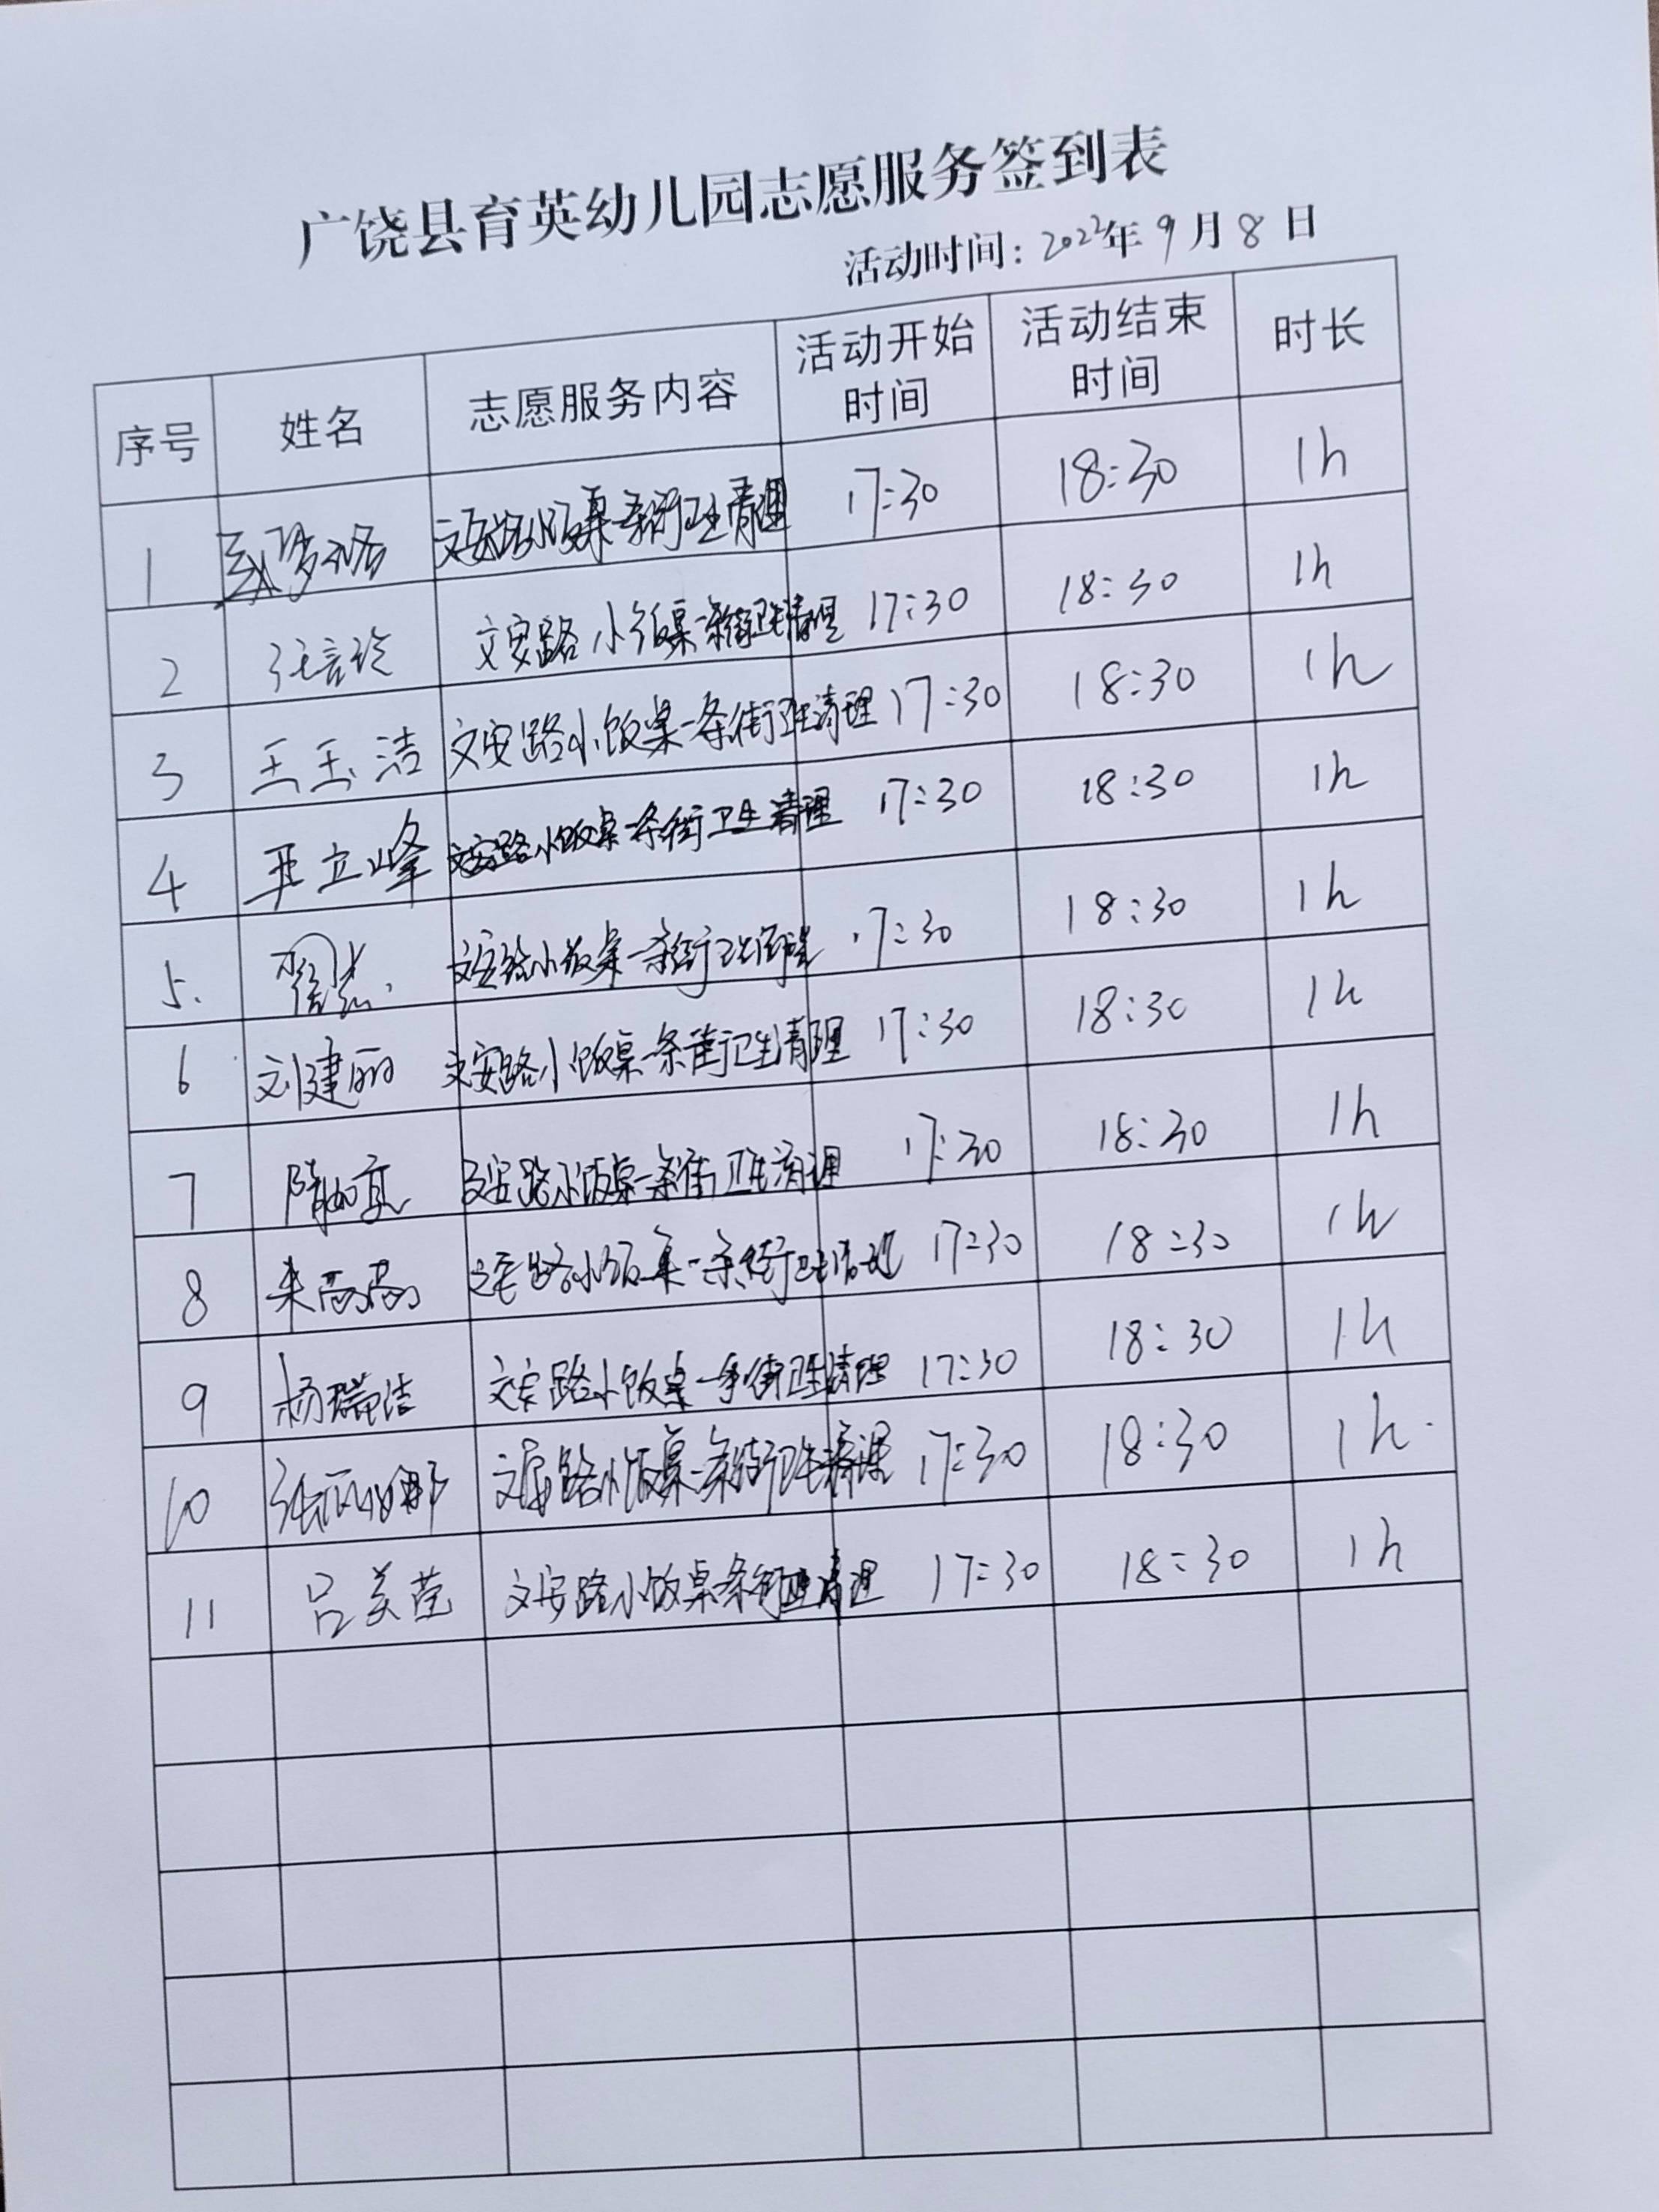 广饶县育英幼儿园志愿服务签到表
活动时间：2022年9月8日
序号 姓名 志愿服务内容 活动开始时间 活动结束时间 时长
1 文安路小饭桌一条街卫生清理 17:30 18:30 1h
2 张培玲 文安路小饭桌一条街卫生清理 17:30 18:30 1h
3 王玉洁 文安路小饭桌一条街卫生清理 17:30 18:30 1h
4 王立峰 文安路小饭桌一条街卫生清理 17:30 18:30 1h
5. 文安路小饭桌一条街卫生清理 17:30 18:30 1h
6 刘建丽 文安路小饭桌一条街卫生清理 17:30 18:30 1h
7 文安路小饭桌一条街卫生清理 17:30 18:30 1h
8 文安路小饭桌一条街卫生清理 17:30 18:30 1h
9 杨瑞洁 文安路小饭桌一条街卫生清理 17:30 18:30 1h
10 张丽娜 文安路小饭桌一条街卫生清理 17:30 18:30 1h.
11 吕美莹 文安路小饭桌条街卫生清理 17:30 18:30 1h